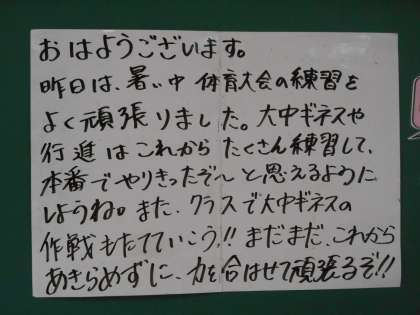 おはようございます。
昨日は、暑い中 体育大会の練習を
よく頑張りました。大中ギネスや
行進はこれからたくさん練習して、
本番でやりきったぞ〜と思えるように
しようね。また、クラスで大中ギネスの
作戦もたてていこう!! まだまだ、これから
あきらめずに、力を合はせて頑張るぞ!!